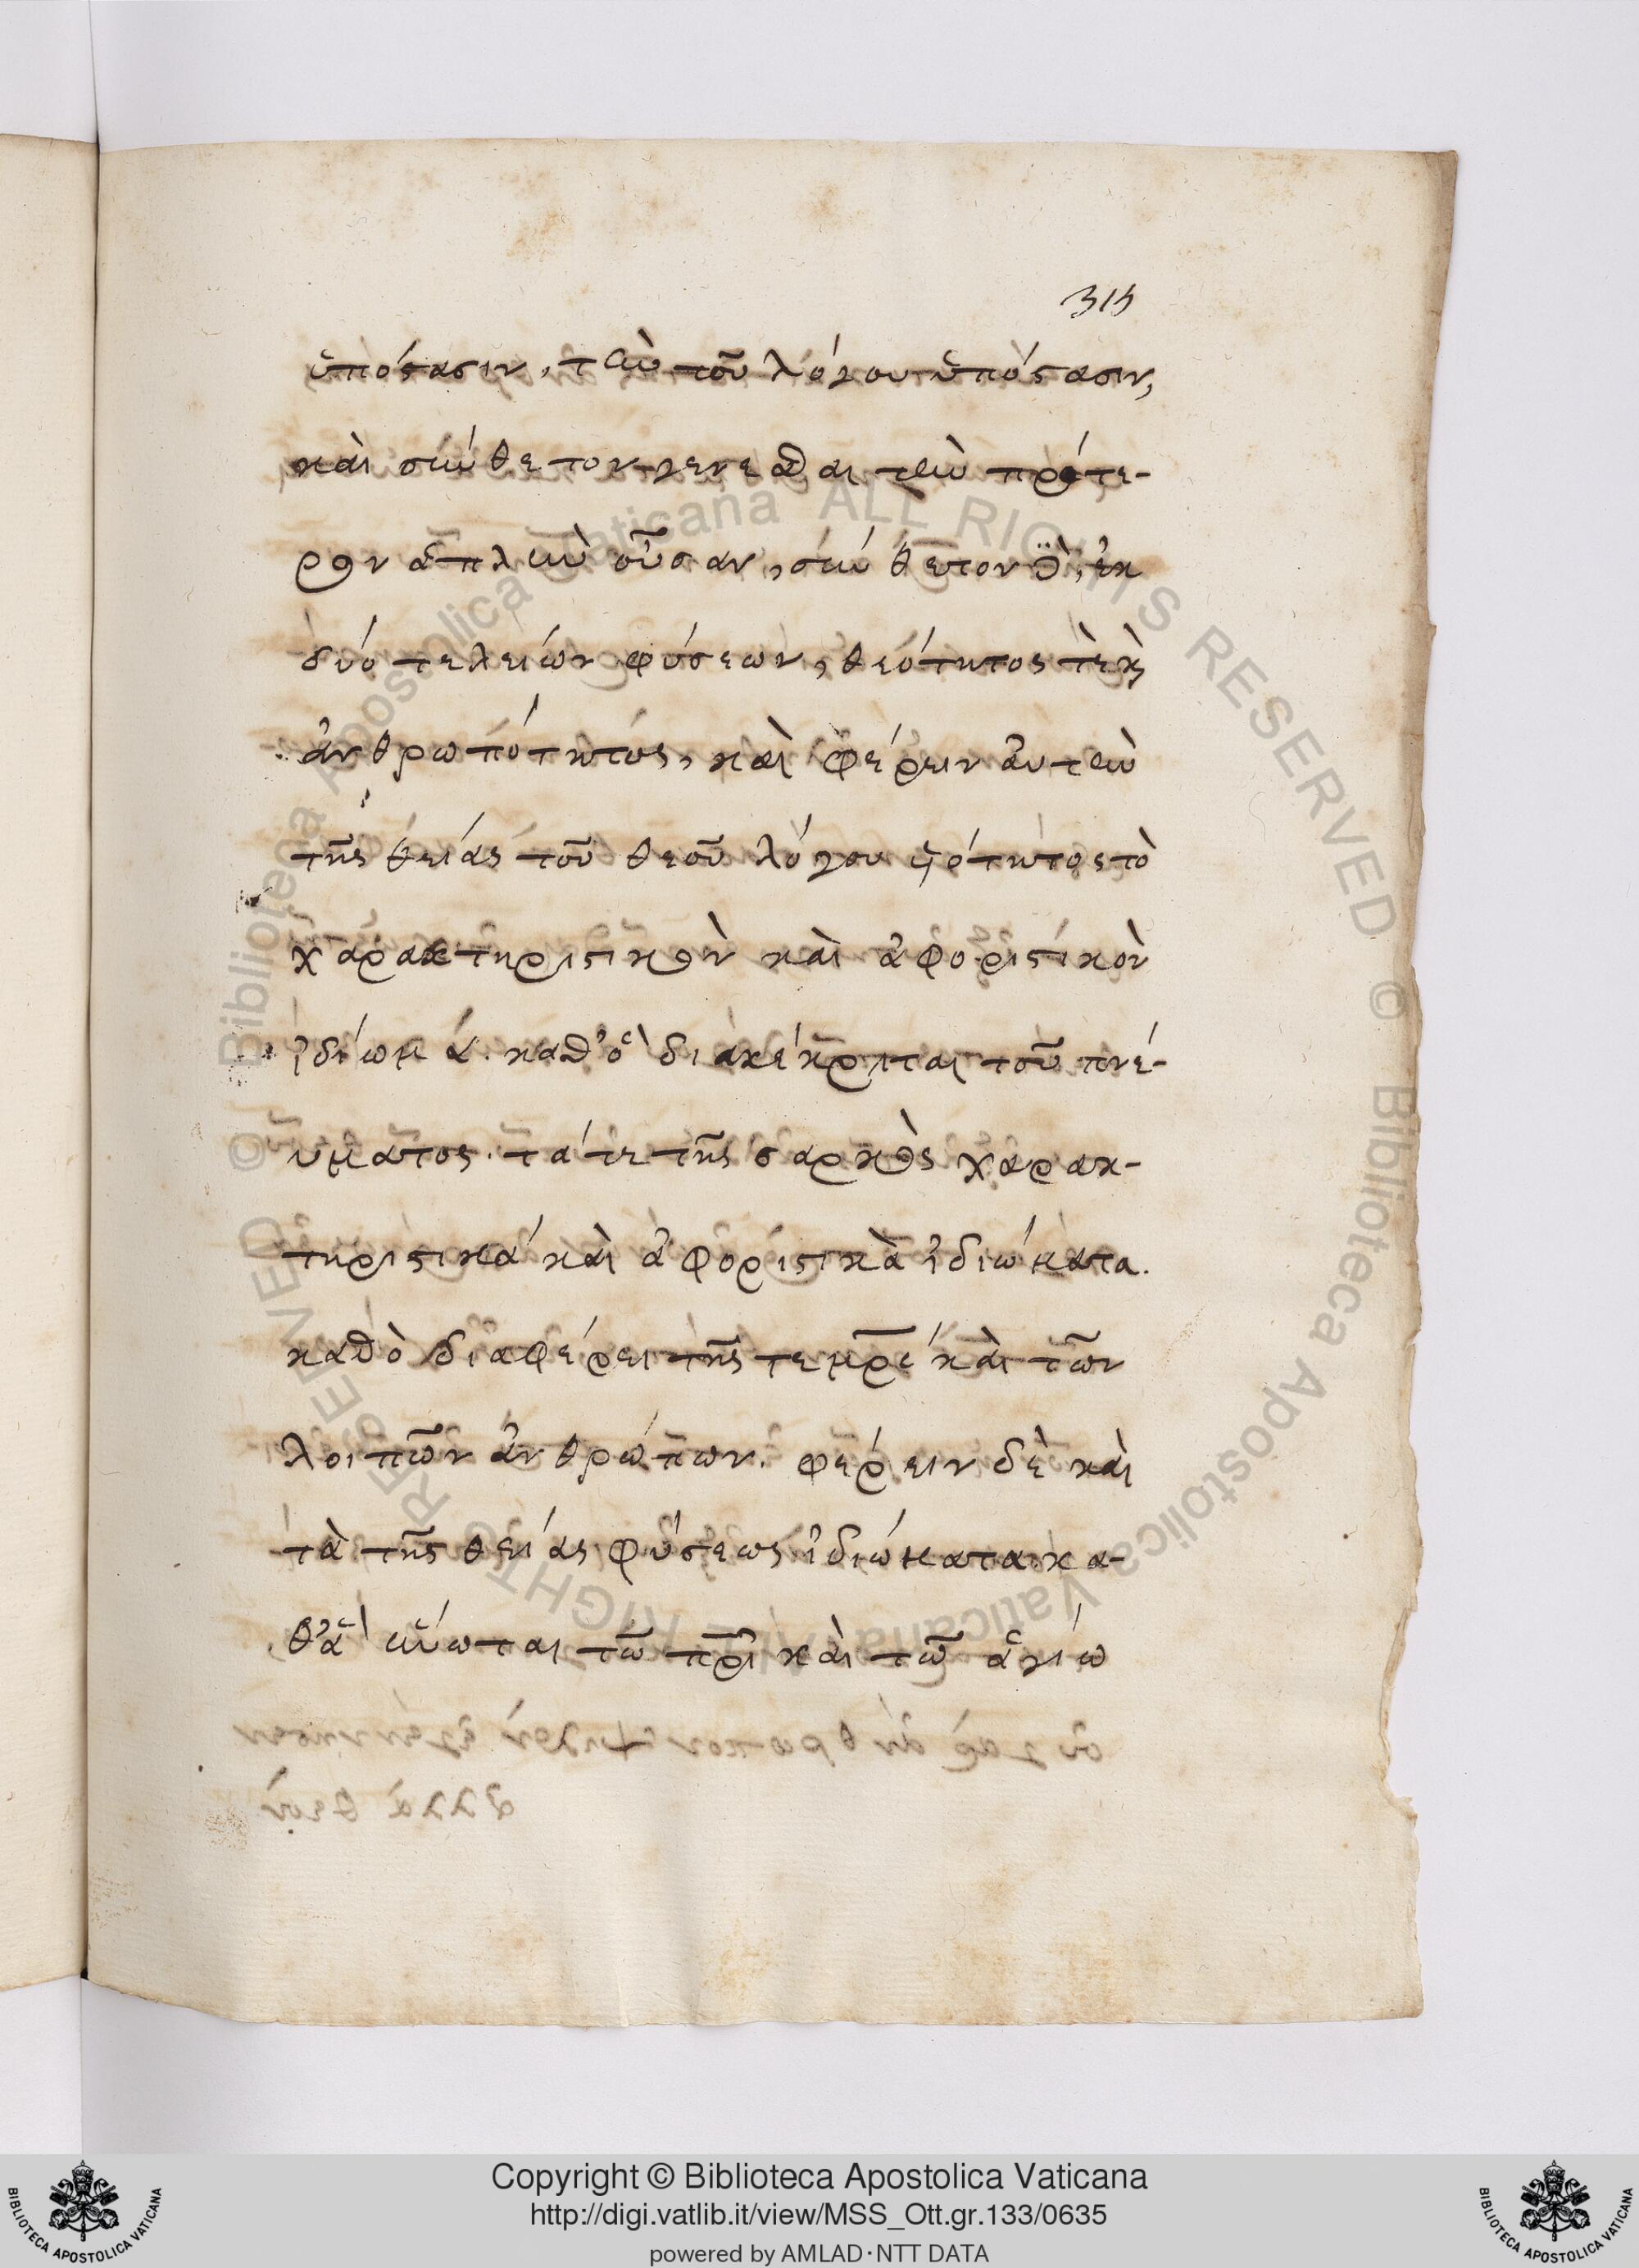 315
ὑπόστασιν, τὴν τοῦ λόγου ὑπόστασιν,
καὶ σύνθετον γενέσθαι τὴν πρότε-
ρον ἁπλῆν οὖσαν, σύνθετον δὲ, ἐκ
δύο τελείων φύσεων, θεότητος τὲ κὶ
ἀνθρωπότητος, καὶ φέρειν αὐτὴν
τῆς θείας τοῦ θεοῦ λόγου ὑϊότητος τὸ
χαρακτηριστικὸν καὶ ἀφοριστικὸν
ἰδίωμα. καθ' ὃ διακέκριται τοῦ πνέ-
υματος. τά τε τῆς σαρκὸς χαρακ-
τηριστικά καὶ ἀφοριστικὰ ἰδιώματα.
καθὸ διαφέρει τῆς τε μρ̅ς καὶ τῶν
λοιπῶν ἀνθρώπων. φέρειν δὲ καὶ
τὰ τῆς θείας φύσεως ἰδιώματα κα-
θ' ἃ ἥνωται τῶ πρ̅ι καὶ τῶ ἁγίω
Copyright © Biblioteca Apostolica Vaticana
http://digi.vatlib.it/view/MSS_Ott.gr.133/0635
powered by AMLAD·NTT DATA
BIBLIOTECA APOSTOLICA VATICANA
BIBLIOTECA APOSTOLICA VATICANA
© Biblioteca Apostolica Vaticana ALL RIGHTS RESERVED
© Biblioteca Apostolica Vaticana ALL RIGHTS RESERVED